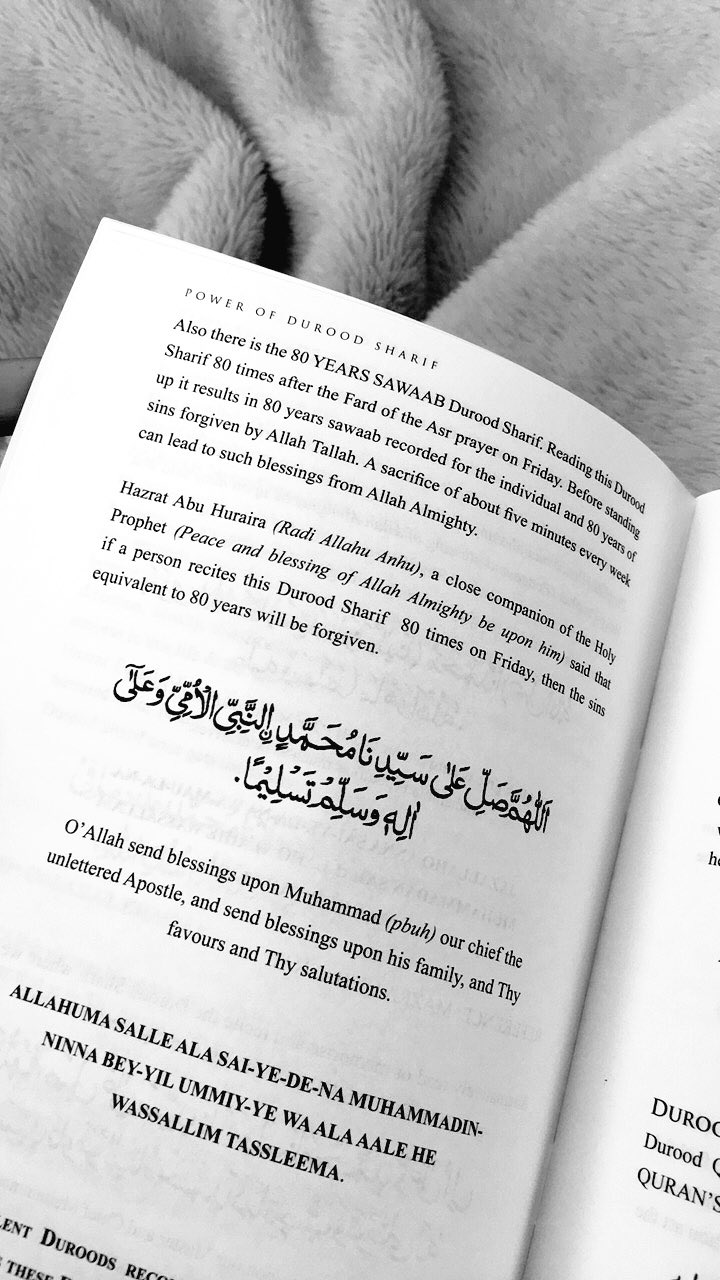 POWER OF DUROOD SHARIF
Also there is the 80 YEARS SAWAAB Durood Sharif. Reading this Durood
Sharif 80 times after the Fard of the Asr prayer on Friday. Before standing
up it results in 80 years sawaab recorded for the individual and 80 years of
sins forgiven by Allah Tallah. A sacrifice of about five minutes every week
can lead to such blessings from Allah Almighty.
Hazrat Abu Huraira (Radi Allahu Anhu), a close companion of the Holy
Prophet (Peace and blessing of Allah Almighty be upon him) said that
if a person recites this Durood Sharif 80 times on Friday, then the sins
equivalent to 80 years will be forgiven.
اَللّٰهُمَّ صَلِّ عَلٰى سَيِّدِنَا مُحَمَّدِ نِ النَّبِيِّ الْاُمِّيِّ وَعَلٰٓى
اٰلِهٖ وَسَلِّمْ تَسْلِيْمًا.
O'Allah send blessings upon Muhammad (pbuh) our chief the
unlettered Apostle, and send blessings upon his family, and Thy
favours and Thy salutations.
ALLAHUMA SALLE ALA SAI-YE-DE-NA MUHAMMADIN-
NINNA BEY-YIL UMMIY-YE WA ALA AALE HE
WASSALLIM TASSLEEMA.
LENT DUROODS RECO
THESE
DUROO
Durood Q
QURAN'S